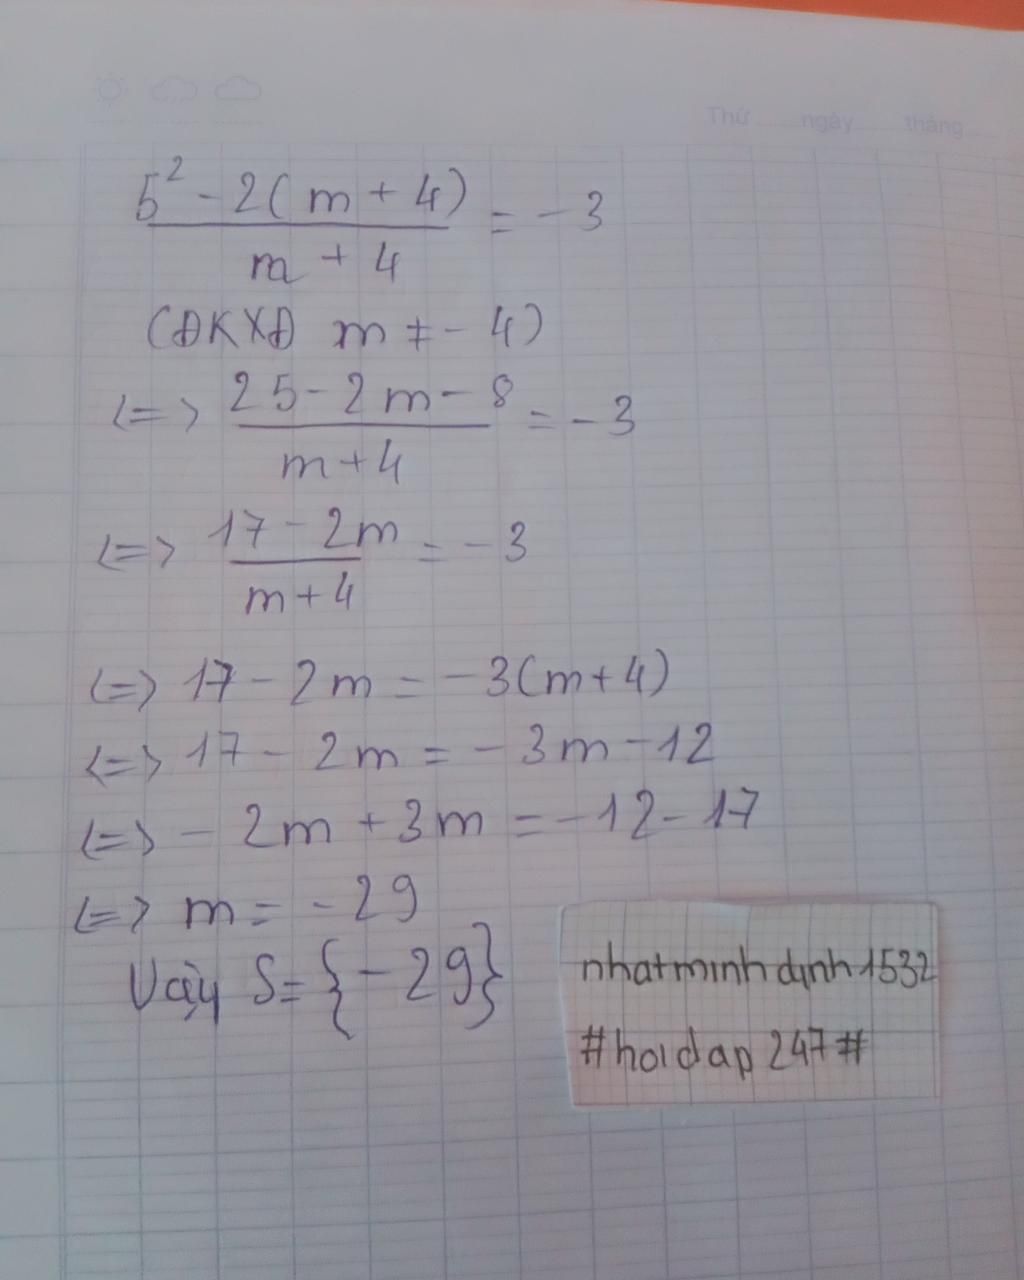 Thứ ngày tháng
5² - 2(m + 4) / m + 4 = - 3
(ĐKXĐ m ≠ - 4)
<=> 25 - 2m - 8 / m + 4 = - 3
<=> 17 - 2m / m + 4 = - 3
<=> 17 - 2m = - 3(m + 4)
<=> 17 - 2m = - 3m - 12
<=> - 2m + 3m = - 12 - 17
<=> m = - 29
Vậy S = {- 29}
nhatminhdinh1532
#hoidap247#